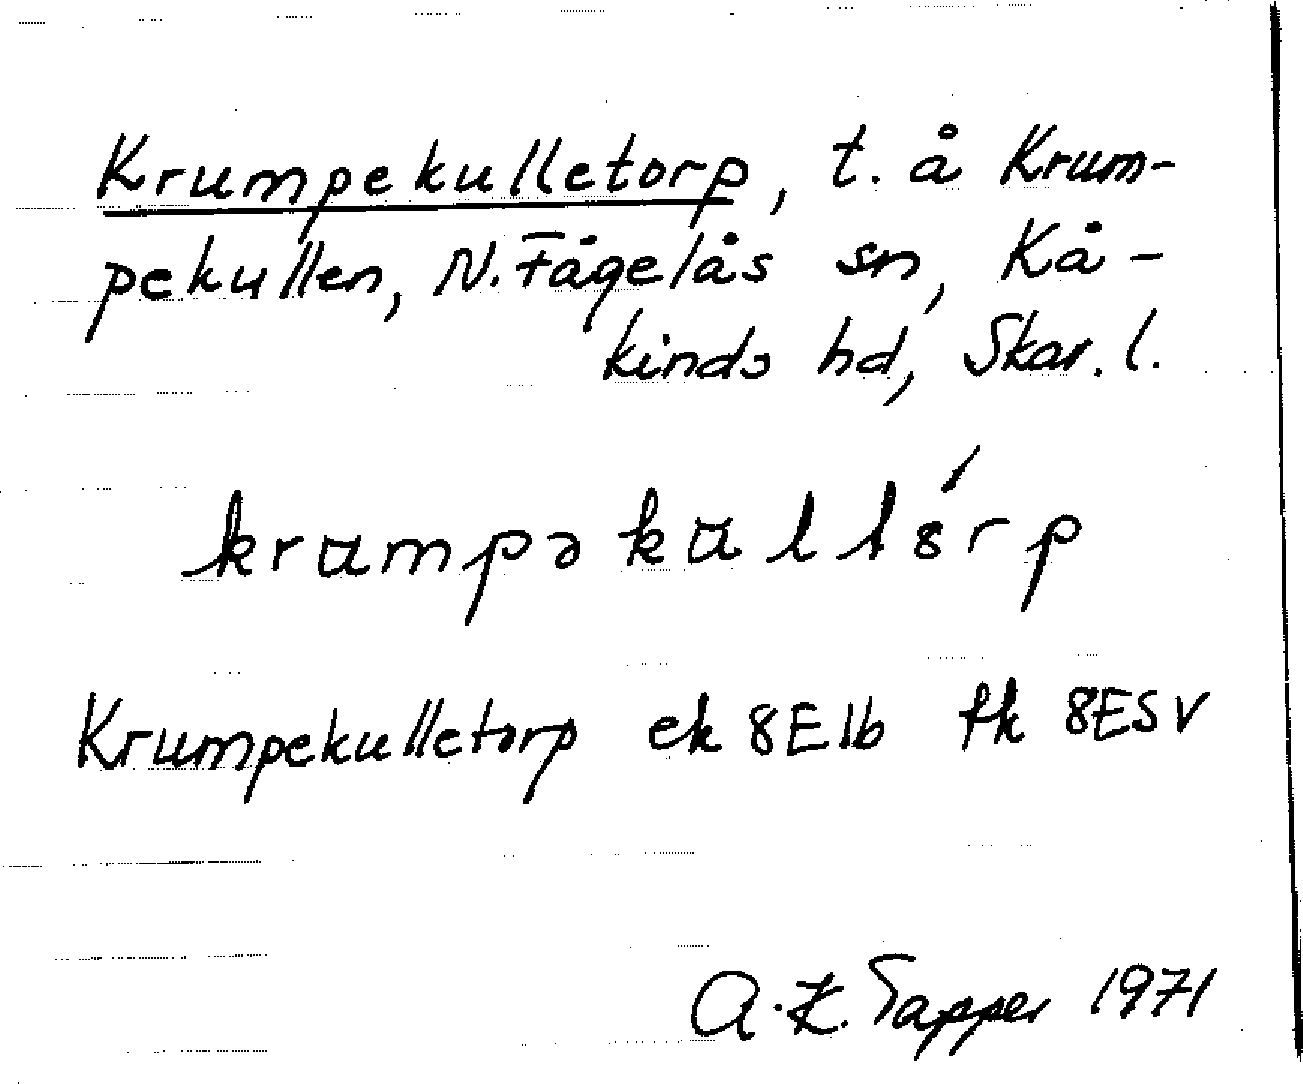 Krumpekulletorp, t. å Krum-
pekullen, N. Fågelås sn, Kå-
kinds hd, Skar. l.
krumpəkullórp
Krumpekulletorp ek 8E1b fk 8ESV
A.K. Tapper 1971